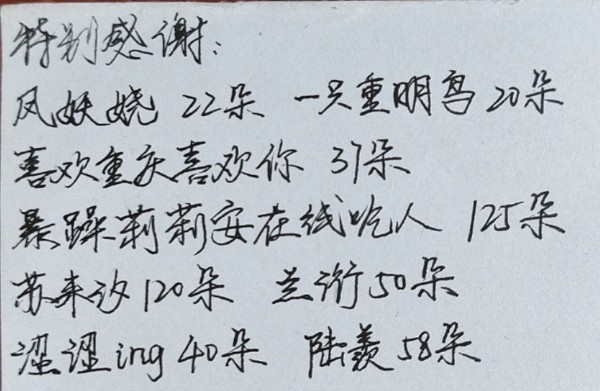 特别感谢:
凤妖娆 22朵 一只重明鸟 20朵
喜欢重庆喜欢你 37朵
暴躁莉莉安在线吃人 125朵
苏来汐 120朵 兰珩 50朵
涩涩ing 40朵 陆羲 58朵